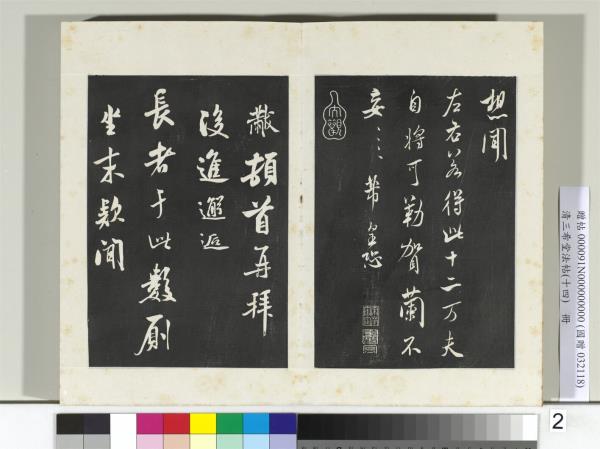 想聞
左右若得此十二万夫
自將可勒賀蘭不
妄〻〻 黻皇恐
黻頓首再拜
後進邂逅
長者于此數廁
坐末款聞
贈帖 000091N000000000 (國贈 032118)
清三希堂法帖(十四) 冊
2